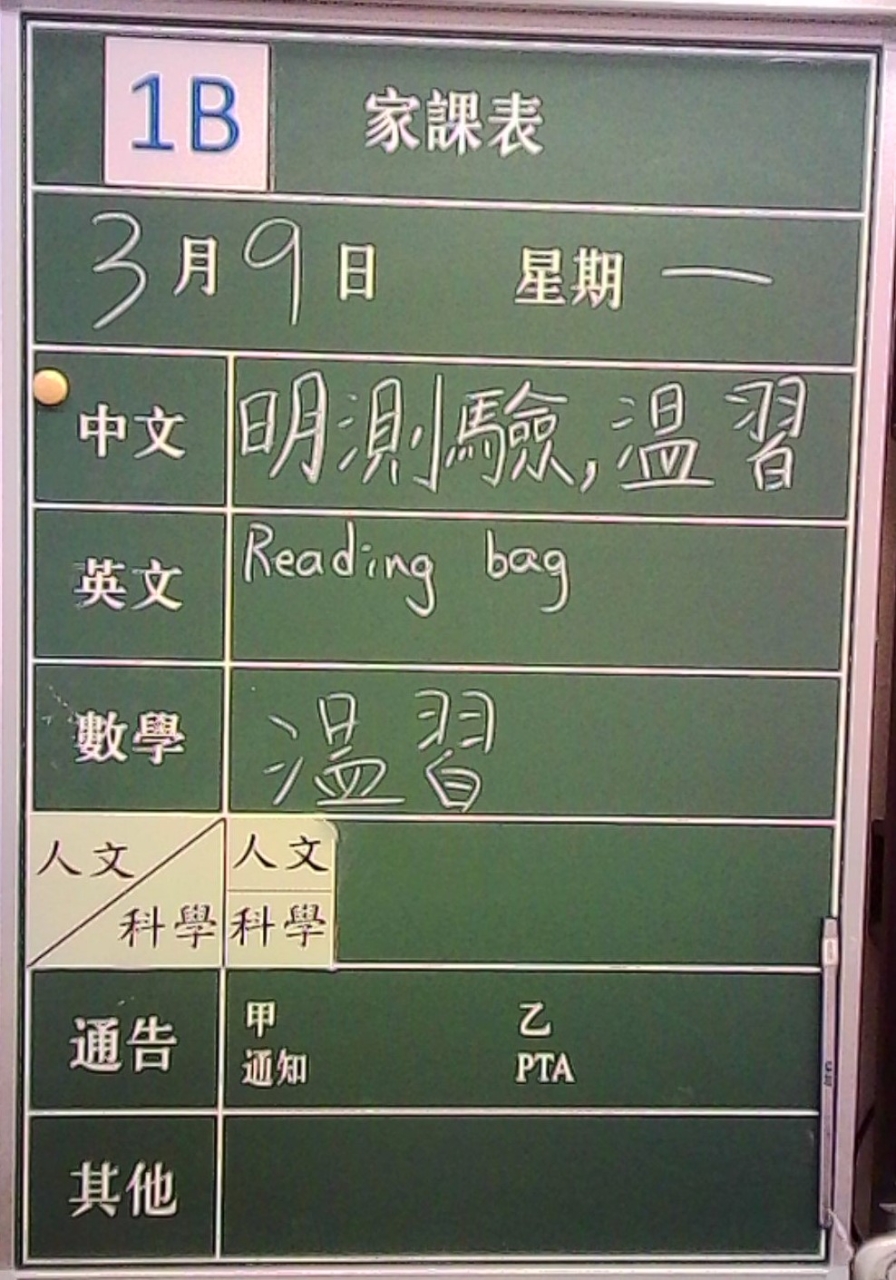 1B 家課表
3月9日 星期一
中文 明測驗,温習
英文 Reading bag
數學 温習
人文 人文
科學 科學
通告 甲 乙
通知 PTA
其他